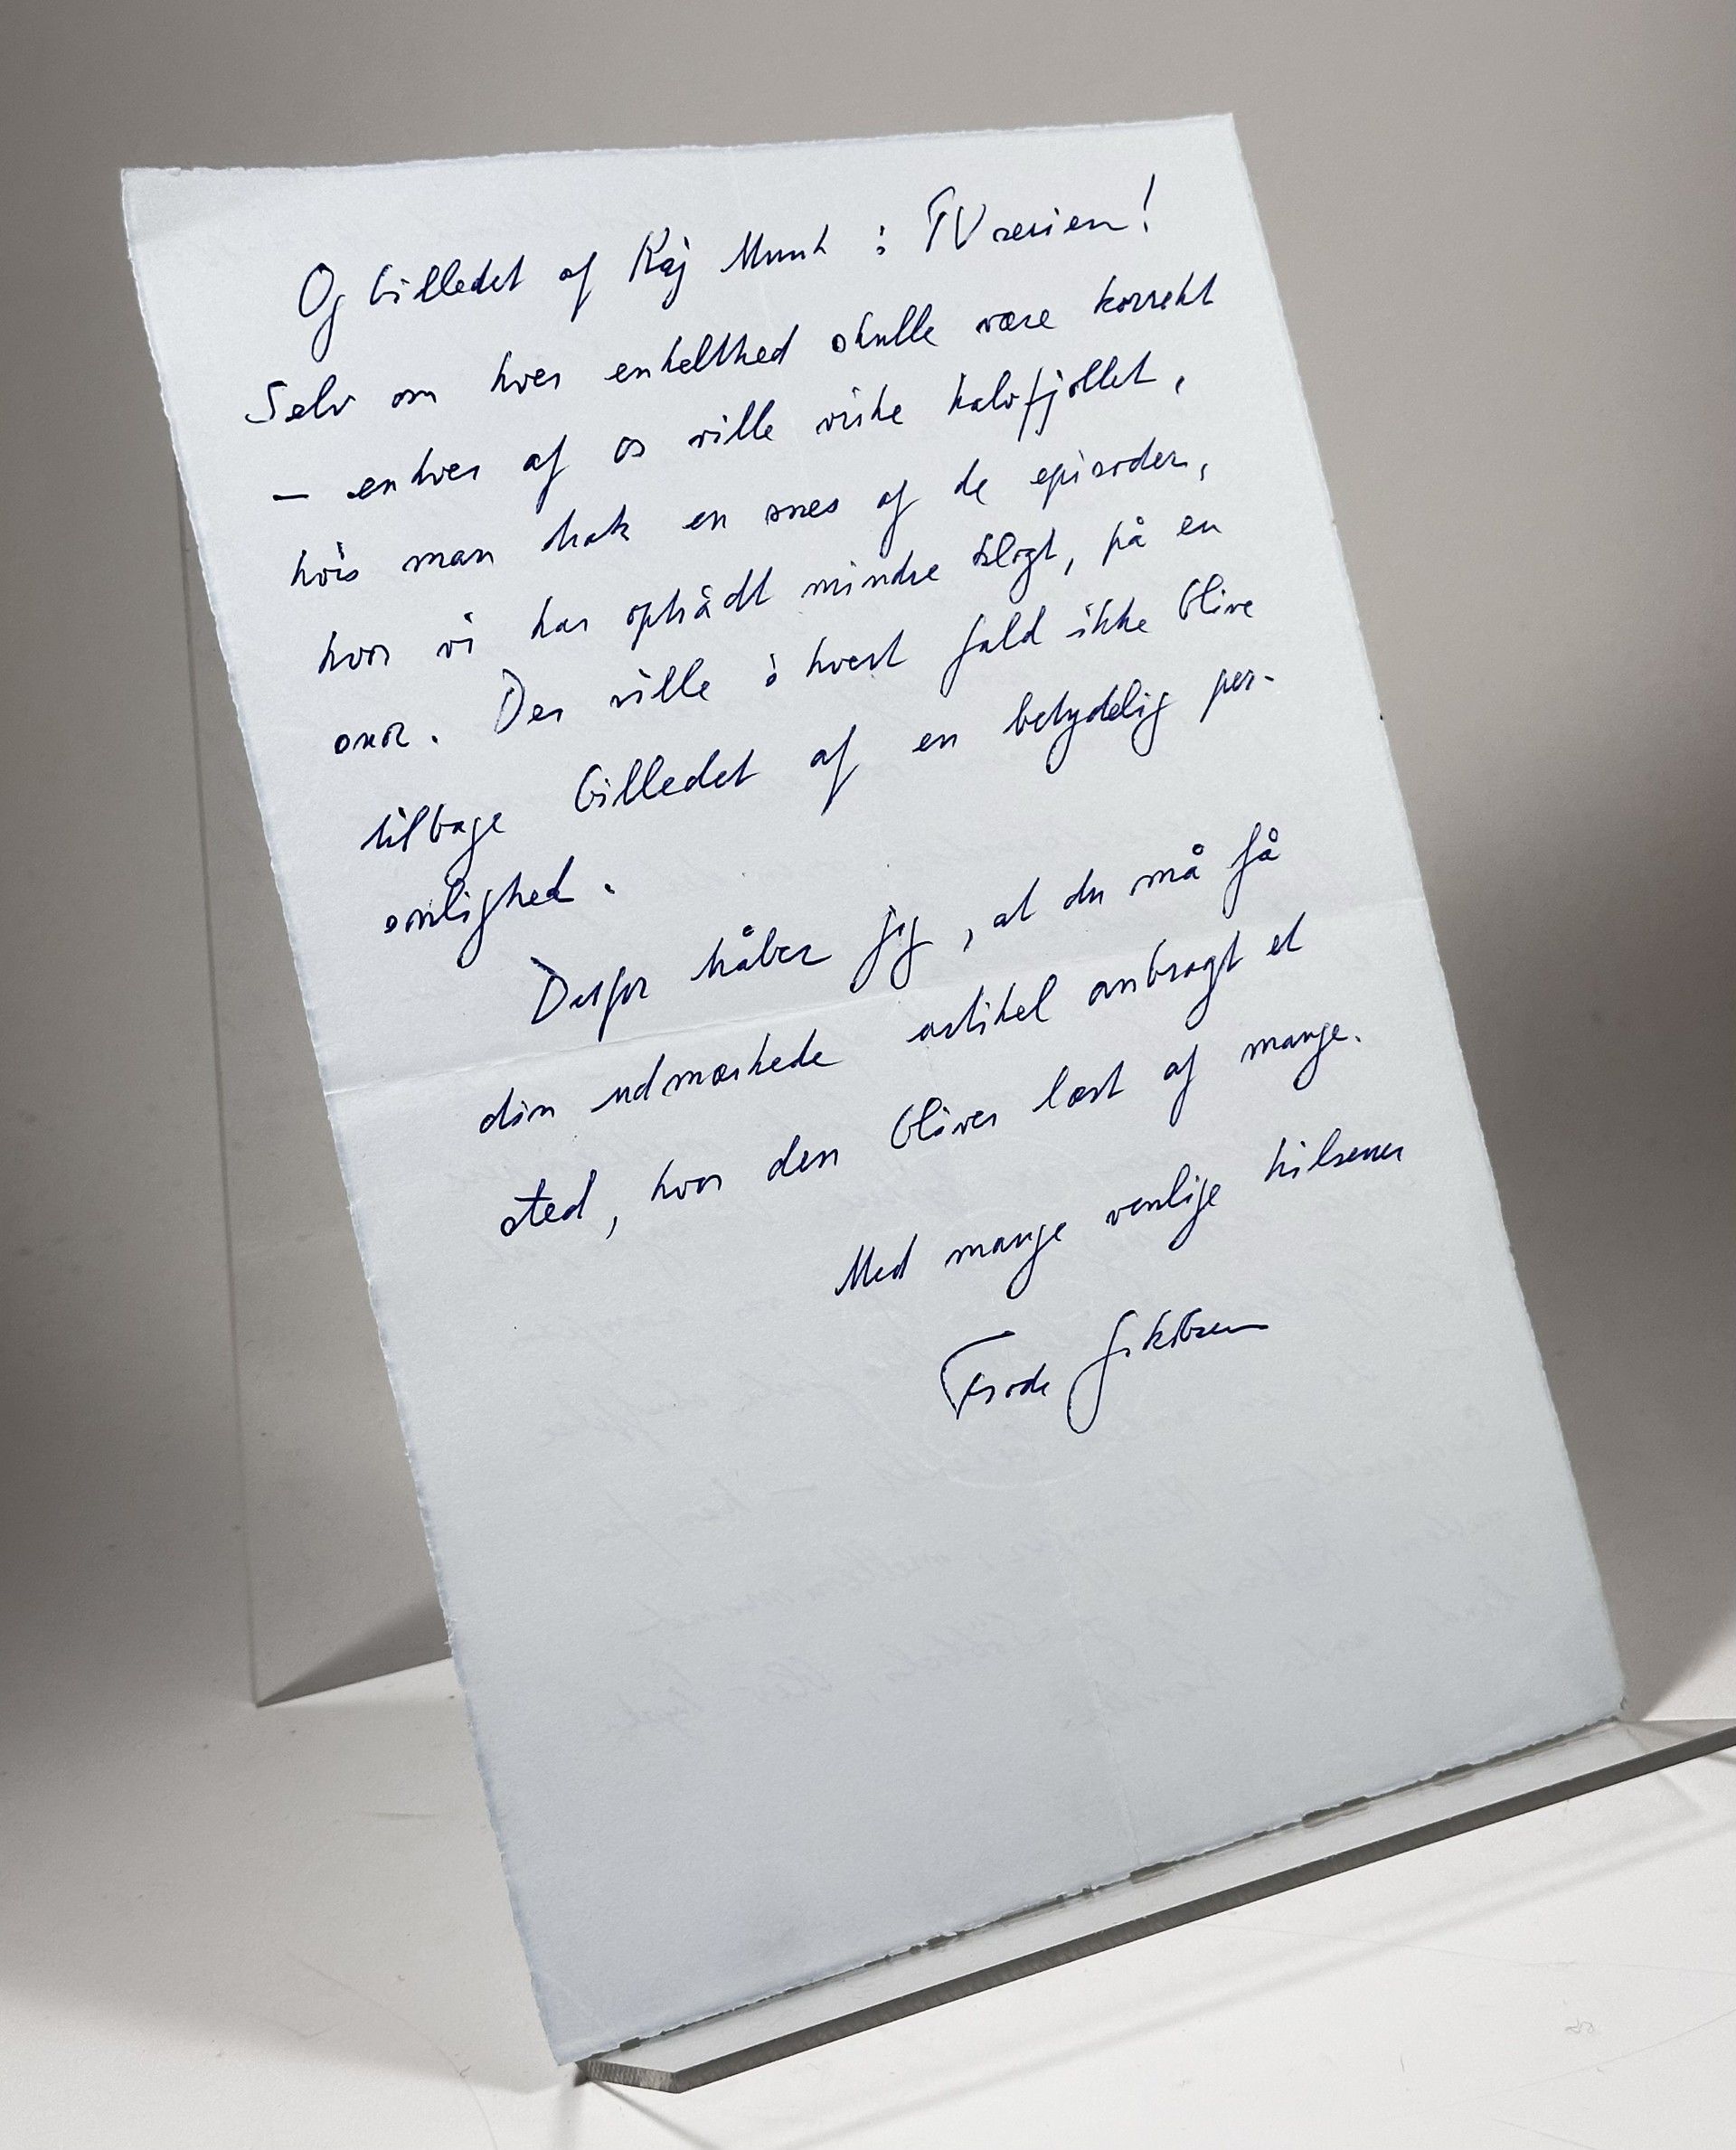 Og billedet af Kaj Munk i TV serien!
Selv om hver enkelthed skulle være korrekt
– enhver af os ville virke halvfjollet,
hvis man trak en snes af de episoder,
hvor vi har optrådt mindre klogt, på en
snor. Der ville i hvert fald ikke blive
tilbage billedet af en betydelig per-
sonlighed.
Derfor håber jeg, at du må få
din udmærkede artikel anbragt et
sted, hvor den bliver læst af mange.
Med mange venlige hilsener
Frode Jakobsen